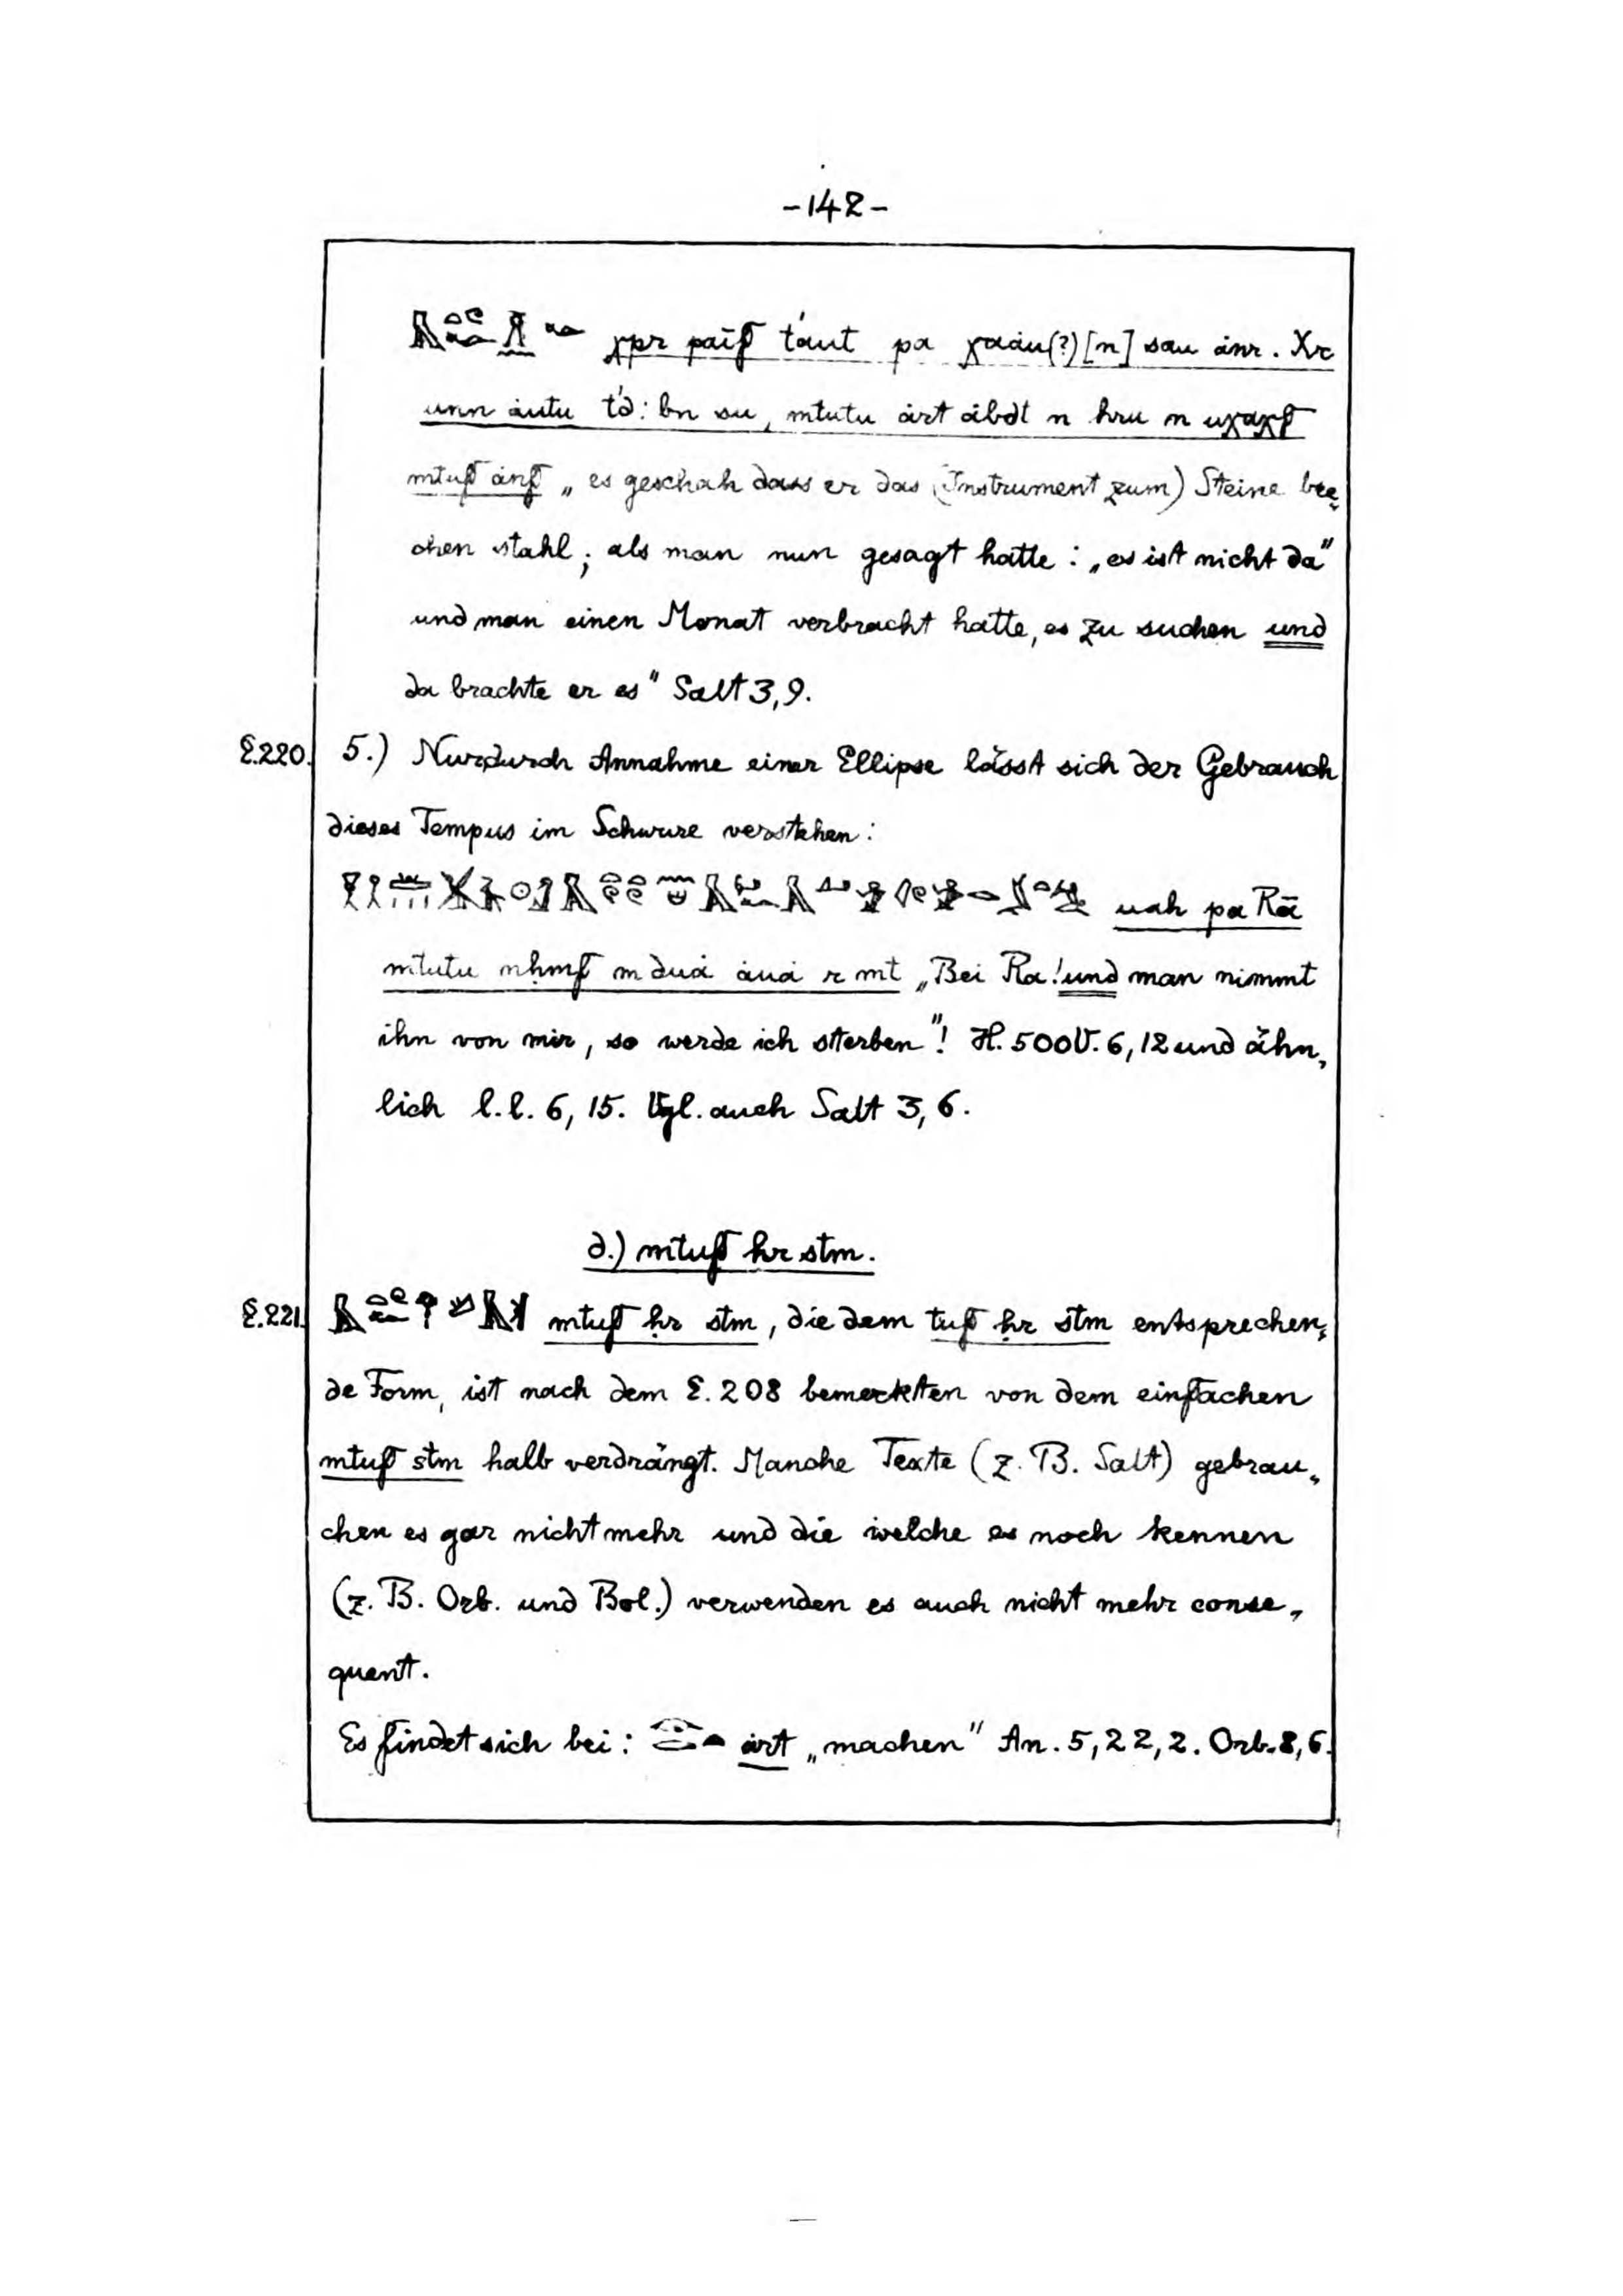 -142-
χpr paif t'aut pa χaȧu(?)[n] sau ȧnr. Xr
unn ȧutu t'd: bn su, mtutu ȧrt ȧbdt n hru n uχaχf
mtuf ȧnf „es geschah dass er das (Instrument zum) Steine bre-
chen stahl; als man nun gesagt hatte: „es ist nicht da"
und man einen Monat verbracht hatte, es zu suchen und
da brachte er es" Salt 3,9.
§.220. 5.) Nur durch Annahme einer Ellipse lässt sich der Gebrauch
dieses Tempus im Schwure verstehen:
uah pa Rā
mtutu nḥmf m duȧ ȧuȧ r mt „Bei Ra! und man nimmt
ihn von mir, so werde ich sterben"! H. 500 V. 6,12 und ähn-
lich l.l. 6, 15. Vgl. auch Salt 3,6.
d.) mtuf ḥr stm.
§.221. mtuf ḥr stm, die dem tuf ḥr stm entsprechen-
de Form, ist nach dem §.208 bemerkten von dem einfachen
mtuf stm halb verdrängt. Manche Texte (z. B. Salt) gebrau-
chen es gar nicht mehr und die welche es noch kennen
(z. B. Orb. und Bol.) verwenden es auch nicht mehr conse-
quent.
Es findet sich bei: ȧrt „machen" An. 5,22,2. Orb. 8,6.